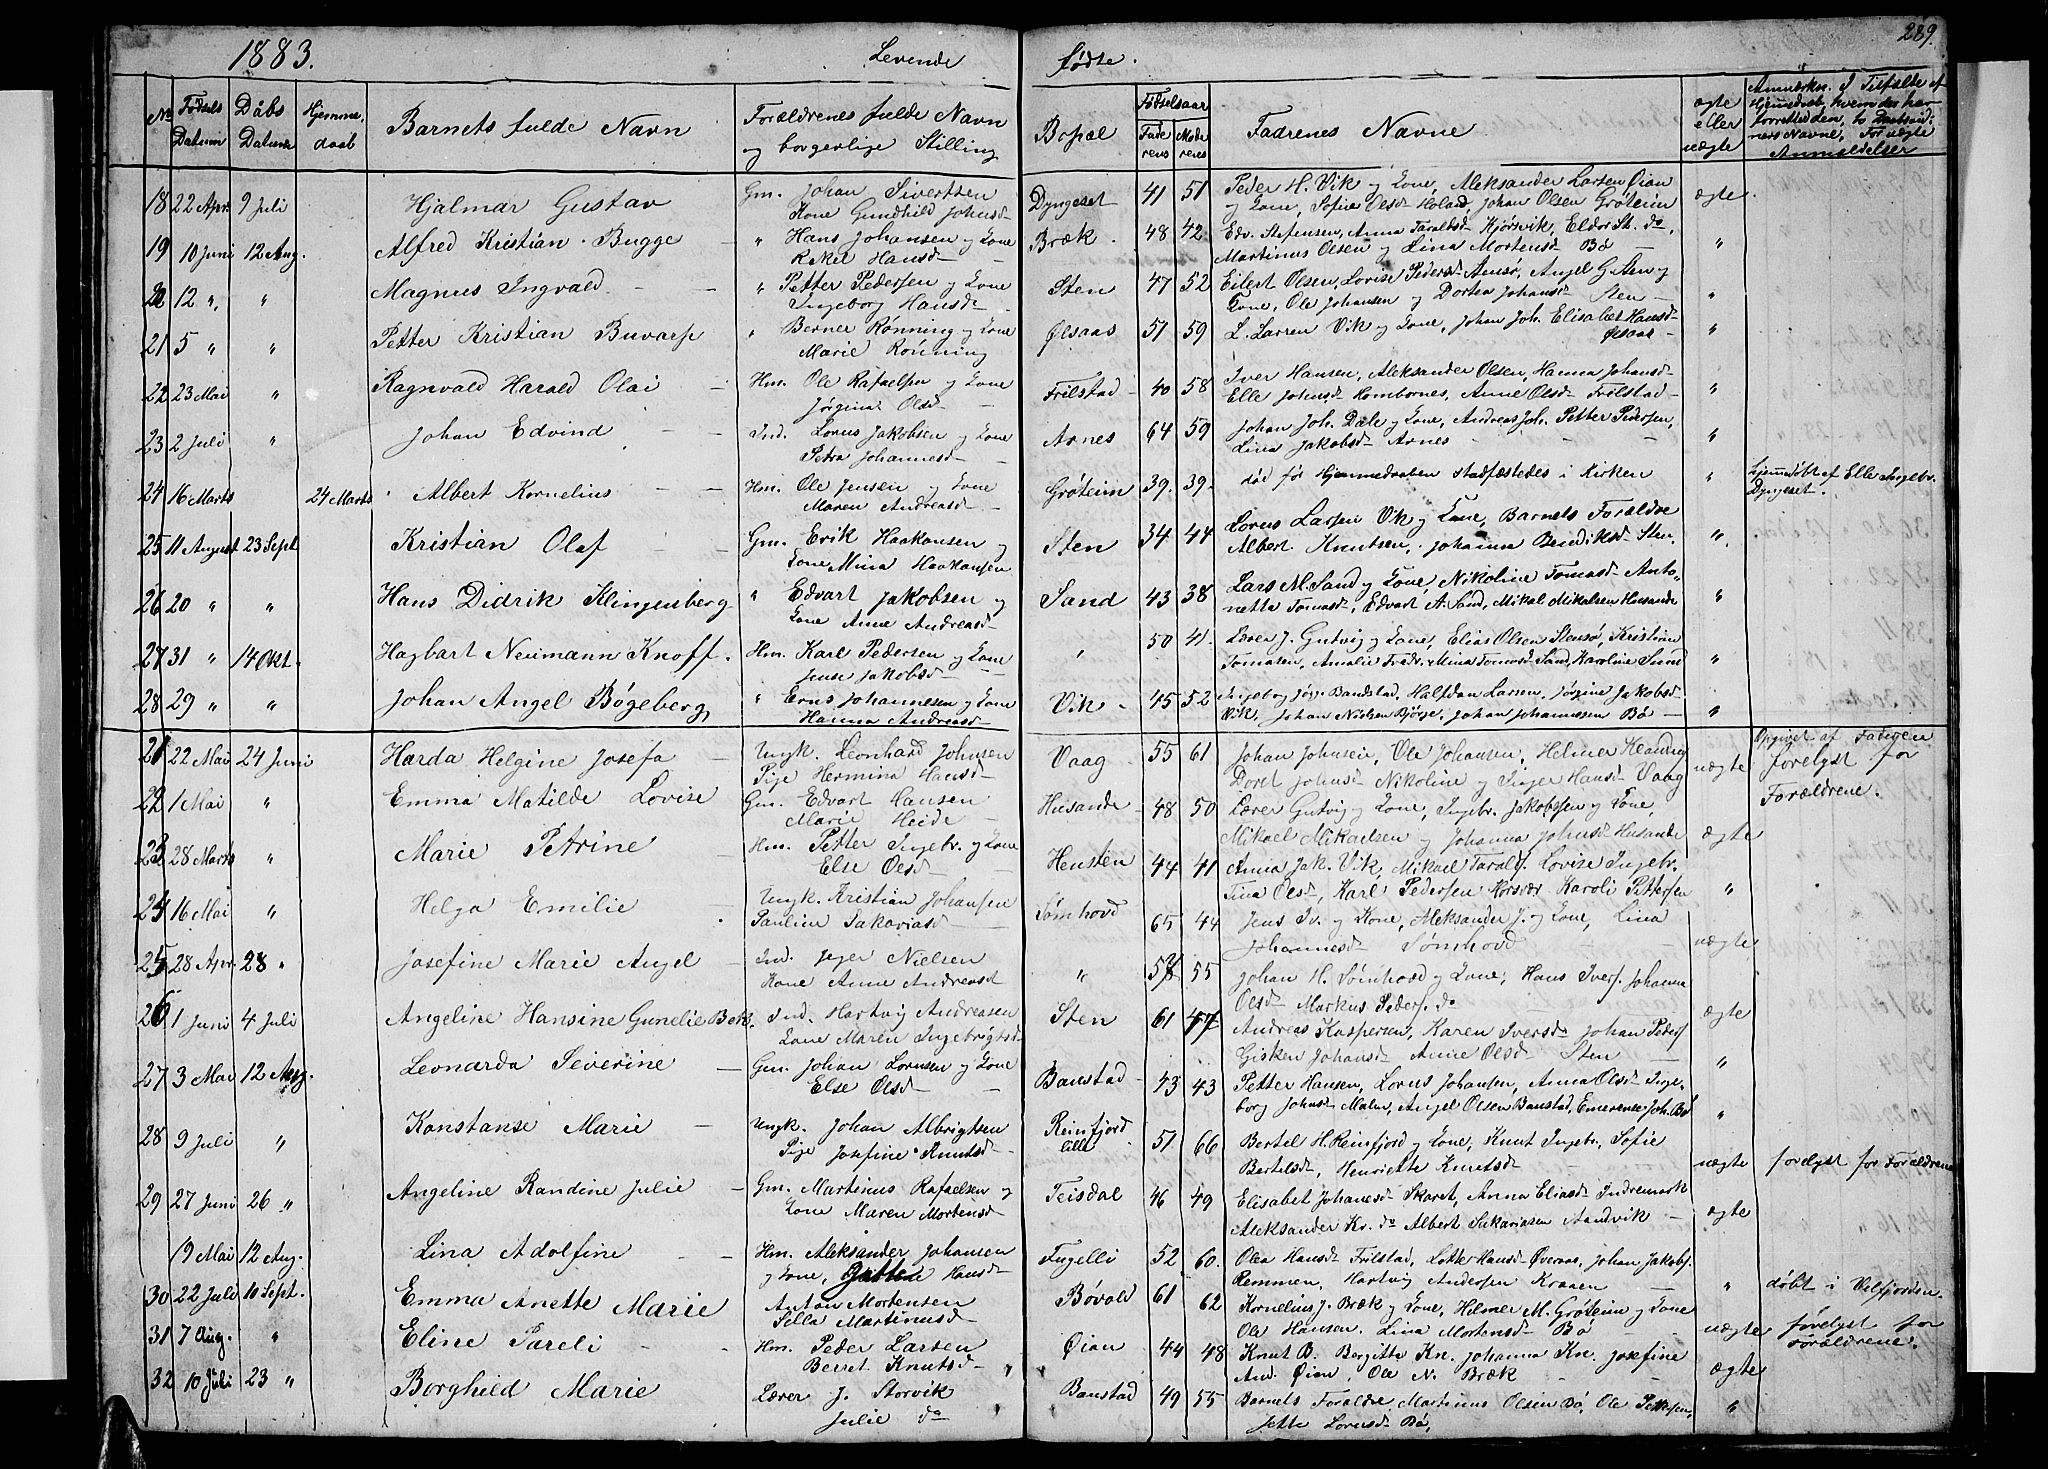 1883. Levende fødte. 289.
No Fødsels Datum Dåbs Datum Hjemmedaab Barnets fulde Navn Forældrenes fulde Navn og borgerlige Stilling Bopæl Fødselsaar Faderens Moderens Fadrenes Navne ægte eller uægte Anmærkn. I Tilfælde af Hjemmedaab, hvem der har forrettet den,
Anmeldelser
18 22 Apr. 9 Juli Hjalmar Gustav Gm. Johan Sivertsen Dyngeset 41 51 Peder H. Vik og Kone, Aleksander Larsen Øian ægte
Kone Gundhild Johnsd og Kone, Sofie Olsd Holand, Johan Olsen Gróteim
19 10 Juni 12 Aug. Alfred Kristian Bugge " Hans Johansen og Kone Bræk 48 42 Edv. Stefensen, Anna Taraldsd Kjørsvik, Eldor St. do, "
Rakel Hansd Martinus Olsen og Lina Mortensd Bø
12 " " Magnus Ingvald " Petter Pedersen og Kone Sten 47 52 Eilert Olsen, Lovise Pedersd Aunsø, Angel G. Sten og "
Ingeborg Hansd Kone, Ole Johansen og Dortea Johansd Sten
21 5 " " Petter Kristian Buvarp " Berner Rønning og Kone Ølsaas 51 59 L. Larsen Vik og Kone, Johan Joh. Elisabet Hansd "
Marie Rønning Ølsaas
22 23 Mai " Ragnvald Harald Olai Hm. Ole Rafaelsen og Kone Frilstad 40 58 Iver Hansen, Aleksander Olsen, Hanna Johansd "
Jørgine Olsd Elle Johnsd Hombornes, Anne Olsd Frilstad
23 2 Juli " Johan Edvind Ind. Lorns Jakobsen og Kone Arnes 64 59 Johan Joh. Dale og Kone, Andreas Joh. Petter Pedersen, "
Petra Johannesd Lina Jakobsd Arnes
24 16 Marts 24 Marts Albert Kornelius Hm. Ole Jensen og Kone Gróteim 39. 39. død før Hjemmedaaben stadfæstedes i Kirken " hjemmedøbt af Elle Ingebr.
Maren Andreasd Dyngeset.
25 11 August 23 Sept Kristian Olaf Gm. Erik Haakonsen og Sten 34 44 Lorns Larsen Vik og Kone, Barnets Forældre "
Kone Mina Haakonsen Albert Knutsen, Johanna Bendiksd Sten,
26 20 " " Hans Didrik Klingenberg " Edvart Jakobsen og Sand 43 38 Lars M. Sand og Kone, Nikoline Tomasd Anto- "
Kone Anne Andreasd netta Tomasd, Edvart A. Sand, Mikal Mikalsen Husande
27 31 " 14 Okt. Hagbart Neumann Knoff. Hm. Karl Pedersen og Kone " 50 41. Lærer J. Gutvig og Kone, Elias Olsen Stensø, Kristian "
Jense Jakobsd Tomasen, Amalie Fredr. Mina Tomasd Sand, Karoline Sund
28 29 " " Johan Angel Bøgeberg " Erns Johannesen og Kone Vik 45 52 Ingebor Jørg. Banstad, Halfdan Larsen, Jørgine Jakobsd "
Hanna Andreasd Vik, Johan Nielsen Bjørge, Johan Johannesen Bø
21 22 Mai 24 Juni Harda Helgine Josefa Ungk. Leonhard Johnsen Vaag 55 61 Johan Johnsen, Ole Johansen, Helmer uægte Opgivet af Faderen
Pige Hermina Hansd Doret Johnsd Nikoline og Inger Hansd Vaag forelyst for
22 1 Mai " Emma Matilde Lovise Gm. Edvart Hansen Husande 48 50 Lærer Gutvig og Kone, Ingebr. Jakobsen og Kone, ægte Forældrene.
Marie Heide Mikael Mikaelsen og Johanna Johnsd Husande
23 28 Marts " Marie Petrine Hm. Petter Ingebr. og Kone Hensten 44 41 Anna Jak. Vik, Mikael Tarals. Lovise Ingebr. "
Else Olsd Tina Olsd, Karl Pedersen Korsvær Karoli Pettersen
24 16 Mai " Helga Emilie Ungk. Kristian Johansen Sømhovd 65 44 Jens Iv. og Kone, Aleksander J. og Kone, Lina uægte
Pauline Sakariasd Johannesd Sømhovd
25 28 Apr. 28 " Josefine Marie Angel Ind. Jeger Nielsen " 57 55 Johan H. Sømhovd og Kone, Hans Ivers. Johanna
Kone Anne Andreasd Olsd Markus Peders. do
26 1 Juni 4 Juli Angeline Hansine Gunelie Bek. Ind. Hartvig Andreasen Sten 61 47 Andreas Kaspersen, Karen Iversd Johan Peders ægte
Kone Maren Ingebrigtsd Gisken Johansd Anne Olsd Sten
27 3 Mai 12 Aug. Leonarda Severine Gm. Johan Lornsen og Kone Banstad 43 43 Petter Hansen, Lorns Johansen, Anna Olsd Inge- "
Else Olsd borg Johnsd Malm, Angel Olsen Banstad, Emerense Joh. Bø
28 9 Juli " Konstanse Marie Ungk. Johan Albrigtsen Reinfjord lille 51 66 Bertel H. Reinfjord og Kone, Knut Ingebr, Sofie uægte forelyst for Forældrene
Pige Josefine Knutsd Bertelsd, Henriette Knutsd
29 27 Juni 26 " Angeline Randine Julie Gm. Martinus Rafaelsen og Teisdal 46 49 Elisabet Johanesd Skaret, Anna Eliasd Indremark ægte
Kone Maren Mortensd Aleksander Kr. do Albert Sakariasen Aandvik
19 Mai 12 Aug. Lina Adolfine Hm. Aleksander Johansen Fugelli 52 60. Olea Hansd Frilstad, Lotte Hansd Øvernes, Johan Jakobs.
og Kone, Hansd Remmen, Hartvig Andersen Kraaen " døbt i Velfjorden.
30 22 Juli 10 Sept. Emma Anette Marie Anton Mortensen Bøvold 61 62 Kornelius J. Bræk og Kone, Helmer M. Gróteim og Kone
Pella Martinusd Ole Hansen. Lina Mortensd Bø uægte forelyst for
31 7 Aug. " Eline Pareli Hm. Peder Larsen Øian 44 48 Knut B. Bergitta Kn. Johanna Kn. Josefine Forældrene.
Berret Knutsd And. Øian, Ole N. Bræk ægte
32 10 Juli 23 " Borghild Marie Lærer J. Storvik Banstad 49 55 Barnets Forældre, Martinus Olsen Bø, Ole Pettersen, "
Julie do Jette Lornsd Bø,